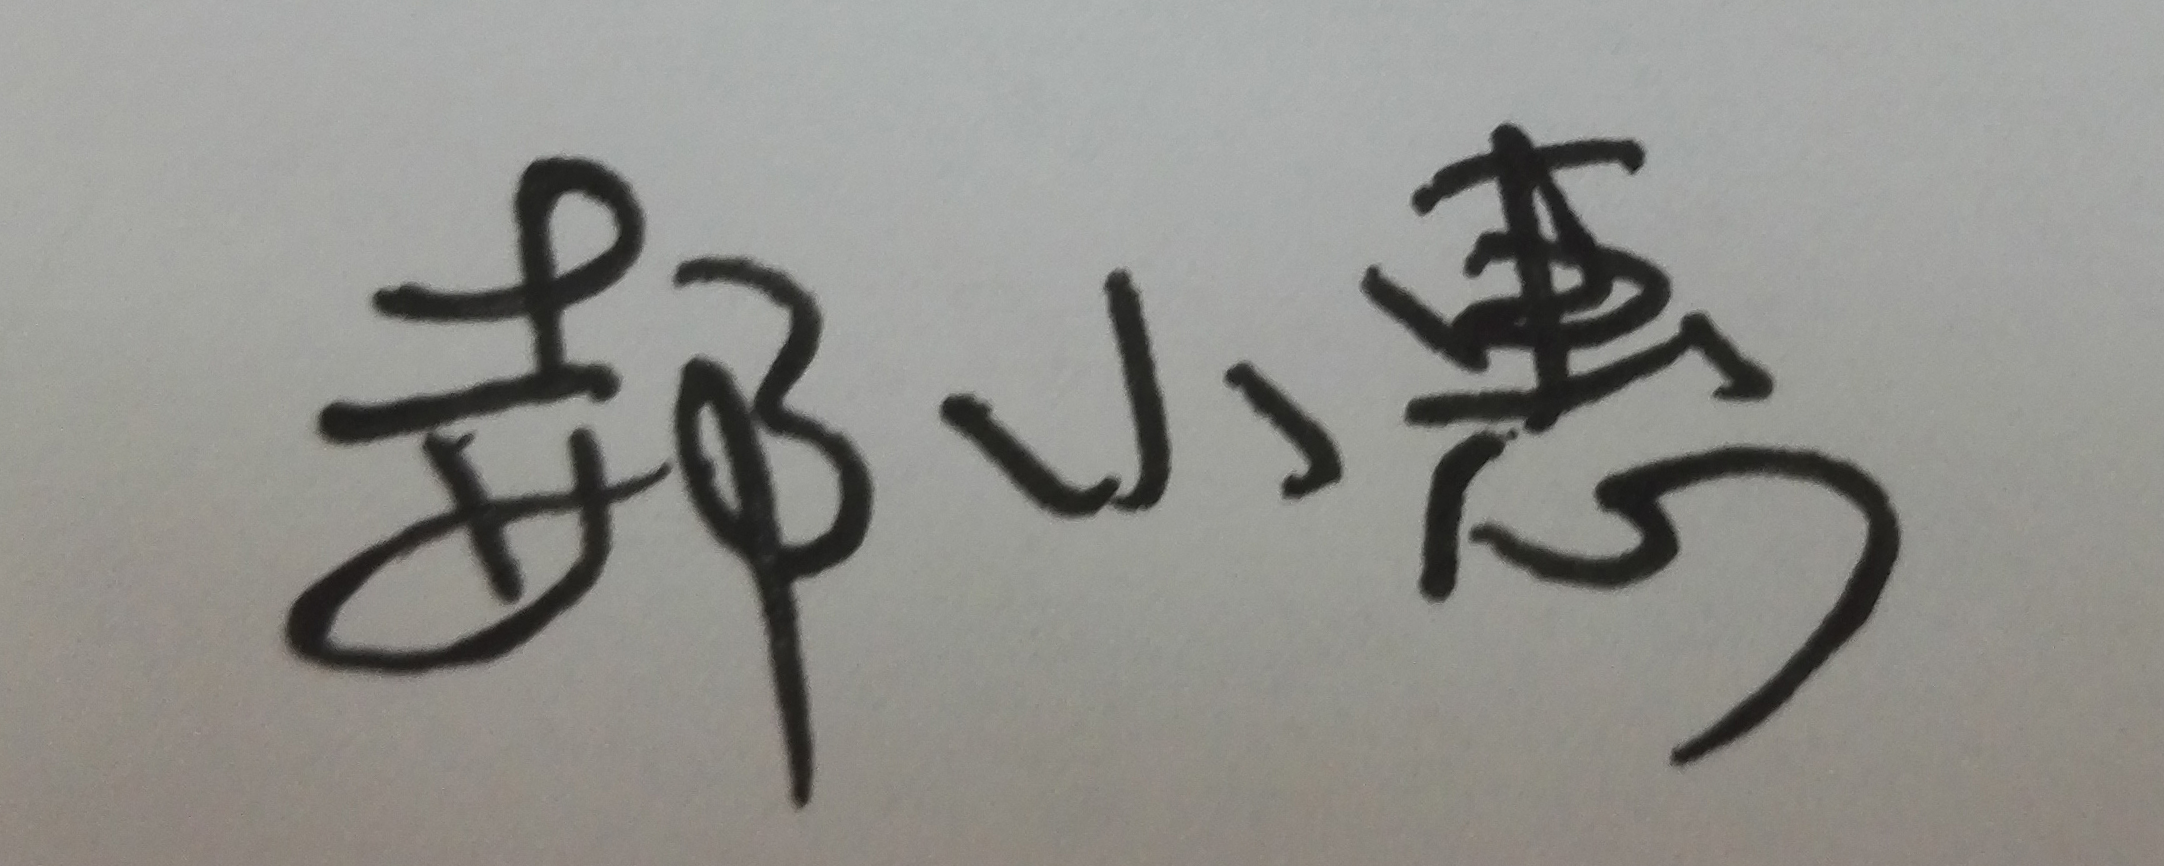 郝小惠